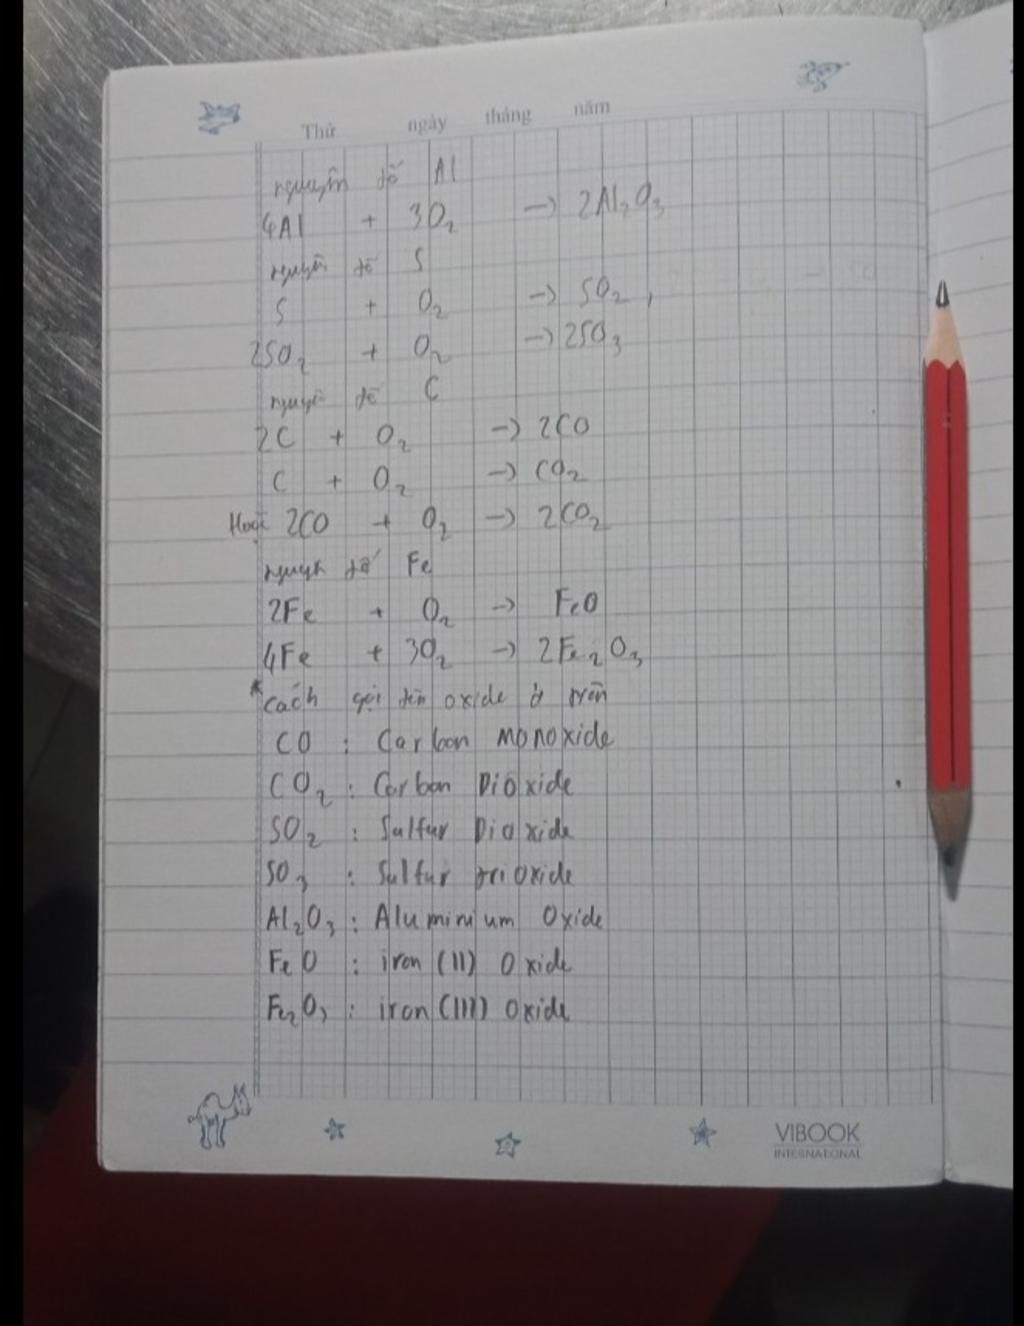 Thứ ngày tháng năm
nguyên tố Al
4Al + 3O₂ → 2Al₂O₃
nguyên tố S
S + O₂ → SO₂
2SO₂ + O₂ → 2SO₃
nguyên tố C
2C + O₂ → 2CO
C + O₂ → CO₂
Hoặc 2CO + O₂ → 2CO₂
nguyên tố Fe
2Fe + O₂ → FeO
4Fe + 3O₂ → 2Fe₂O₃
*cách gọi tên oxide ở trên
CO : Carbon Monoxide
CO₂ : Carbon Dioxide
SO₂ : Sulfur Dioxide
SO₃ : Sulfur trioxide
Al₂O₃ : Aluminium Oxide
FeO : iron (II) Oxide
Fe₂O₃ : iron (III) Oxide
VIBOOK
INTERNATIONAL